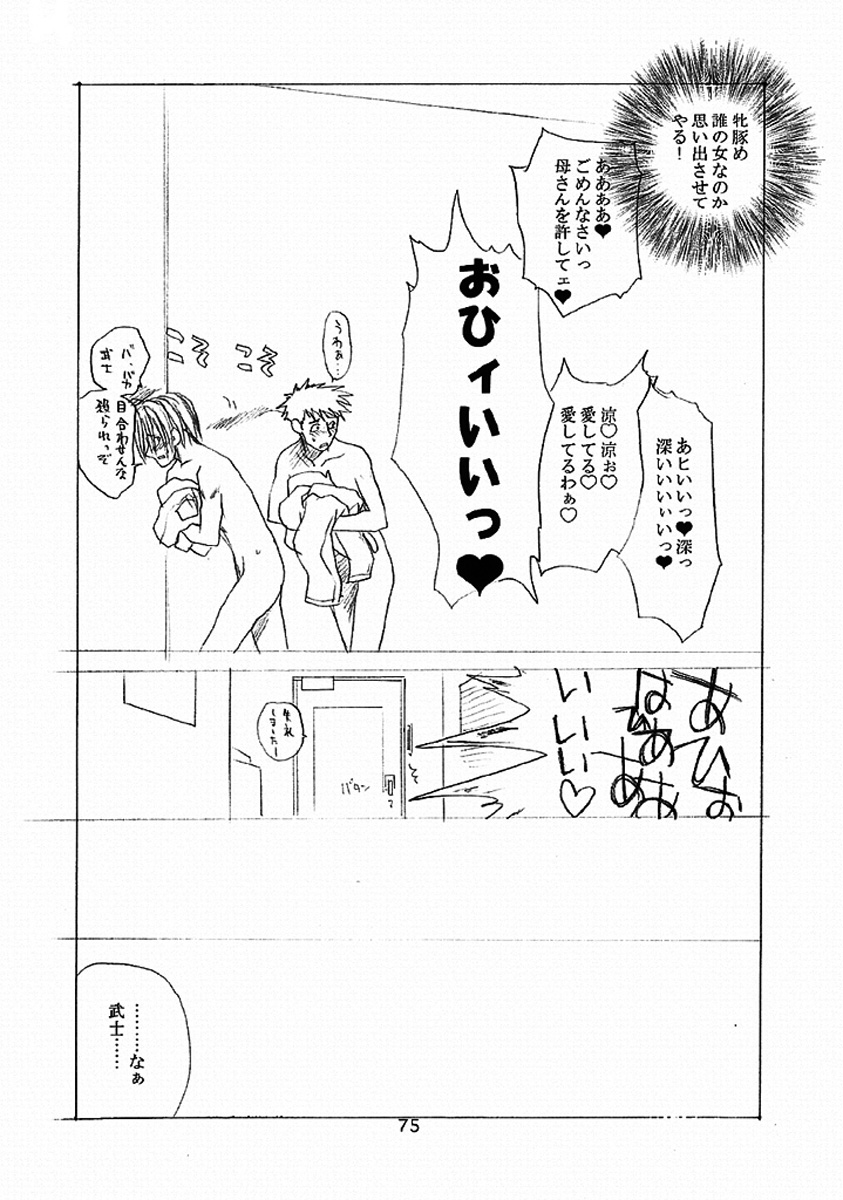 牝豚め
誰の女なのか
思い出させて
やる！
ああああ♥
ごめんなさいっ
母さんを許してェ♥
おひィいいっ♥
あヒいいっ♥深っ
深いいいぃいっ♥
涼♡涼ぉ♡
愛してる♡
愛してるわぁ♡
うわぁ…
こそ
こそ
バ、バカ
武士
目合わせんな
殴られっぞ
あひぉ
はひああ
ああ
いいいい♡
失礼
しましたー
バタン
………なぁ
武士……
75